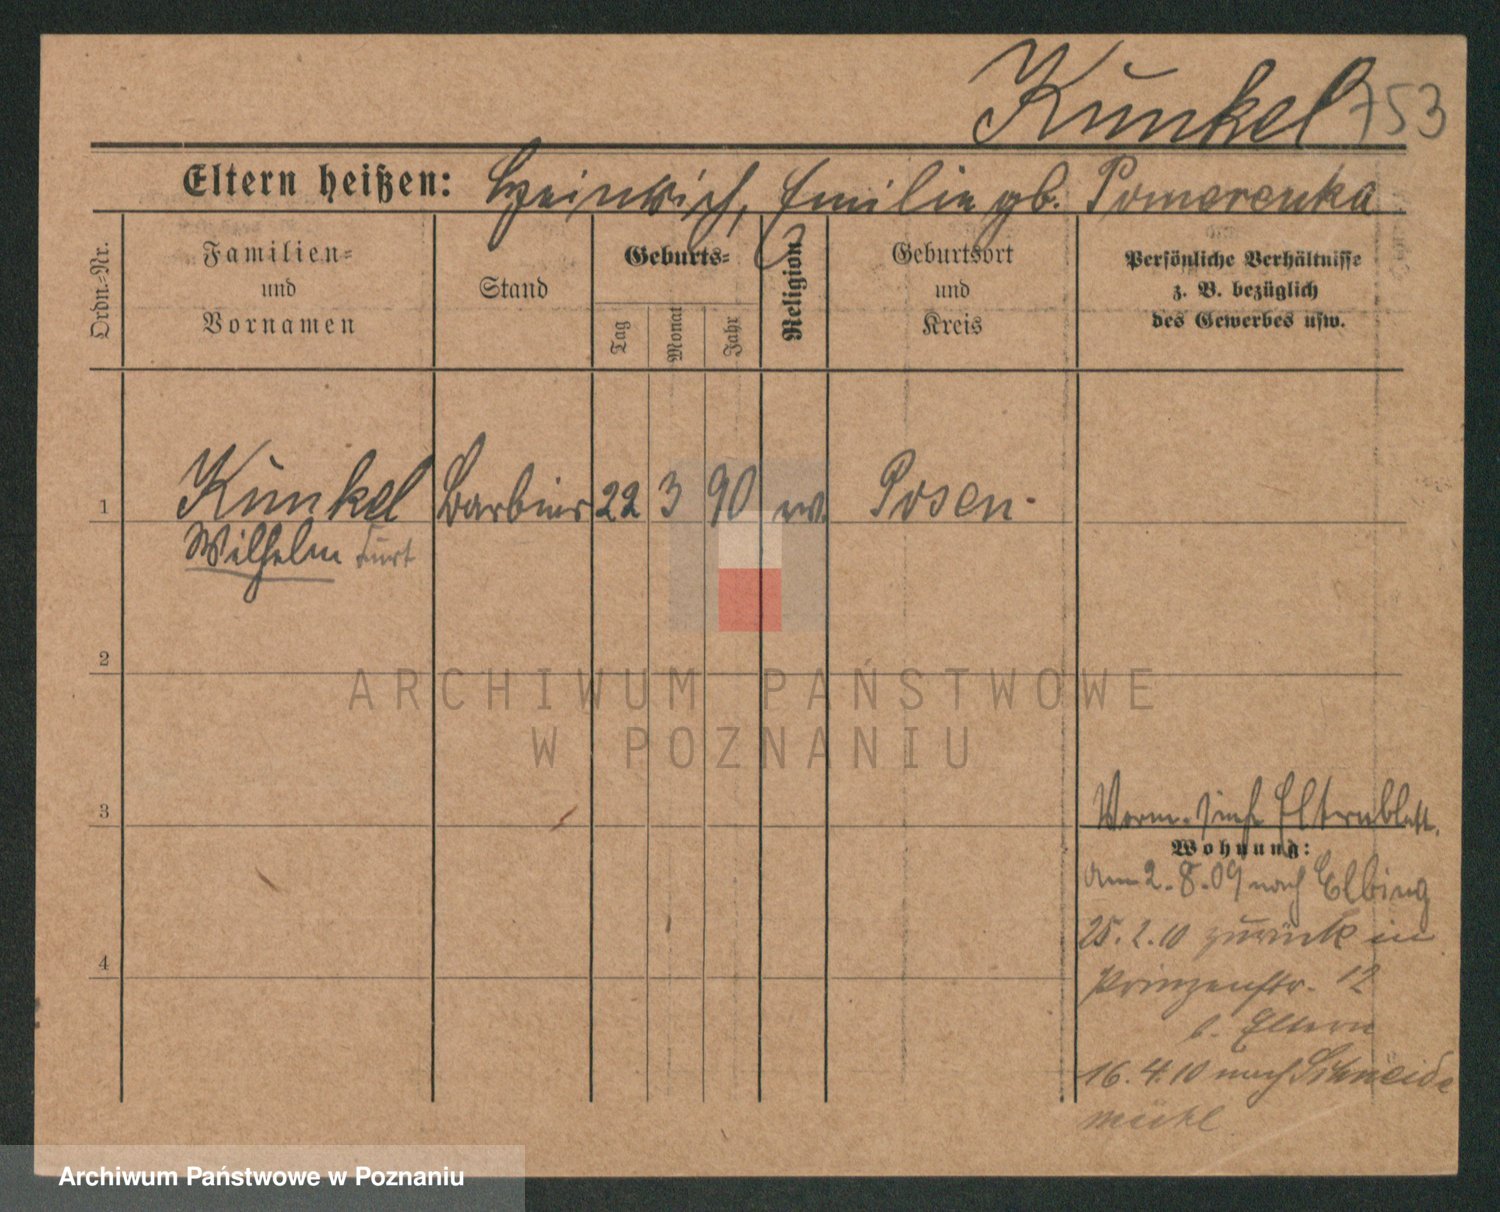 Kunkel 753
Eltern heißen: Heinrich, Emilie gb. Pomerenka
Ordn.-Nr.
Familien-
und
Vornamen
Stand
Geburts-
Tag
Monat
Jahr
Religion
Geburtsort
und
Kreis
Persönliche Verhältnisse
z. B. bezüglich
des Gewerbes usw.
1 Kunkel Barbier 22 3 90 ev. Posen.
Wilhelm Kurt
2
3
4
Vorm. siehe Elternblatt.
Wohnung:
am 2.8.09 nach Elbing
25.2.10 zurück in
Prinzenstr. 12
b. Eltern
16.4.10 nach Schneide
mühl
ARCHIWUM PAŃSTWOWE
W POZNANIU
Archiwum Państwowe w Poznaniu